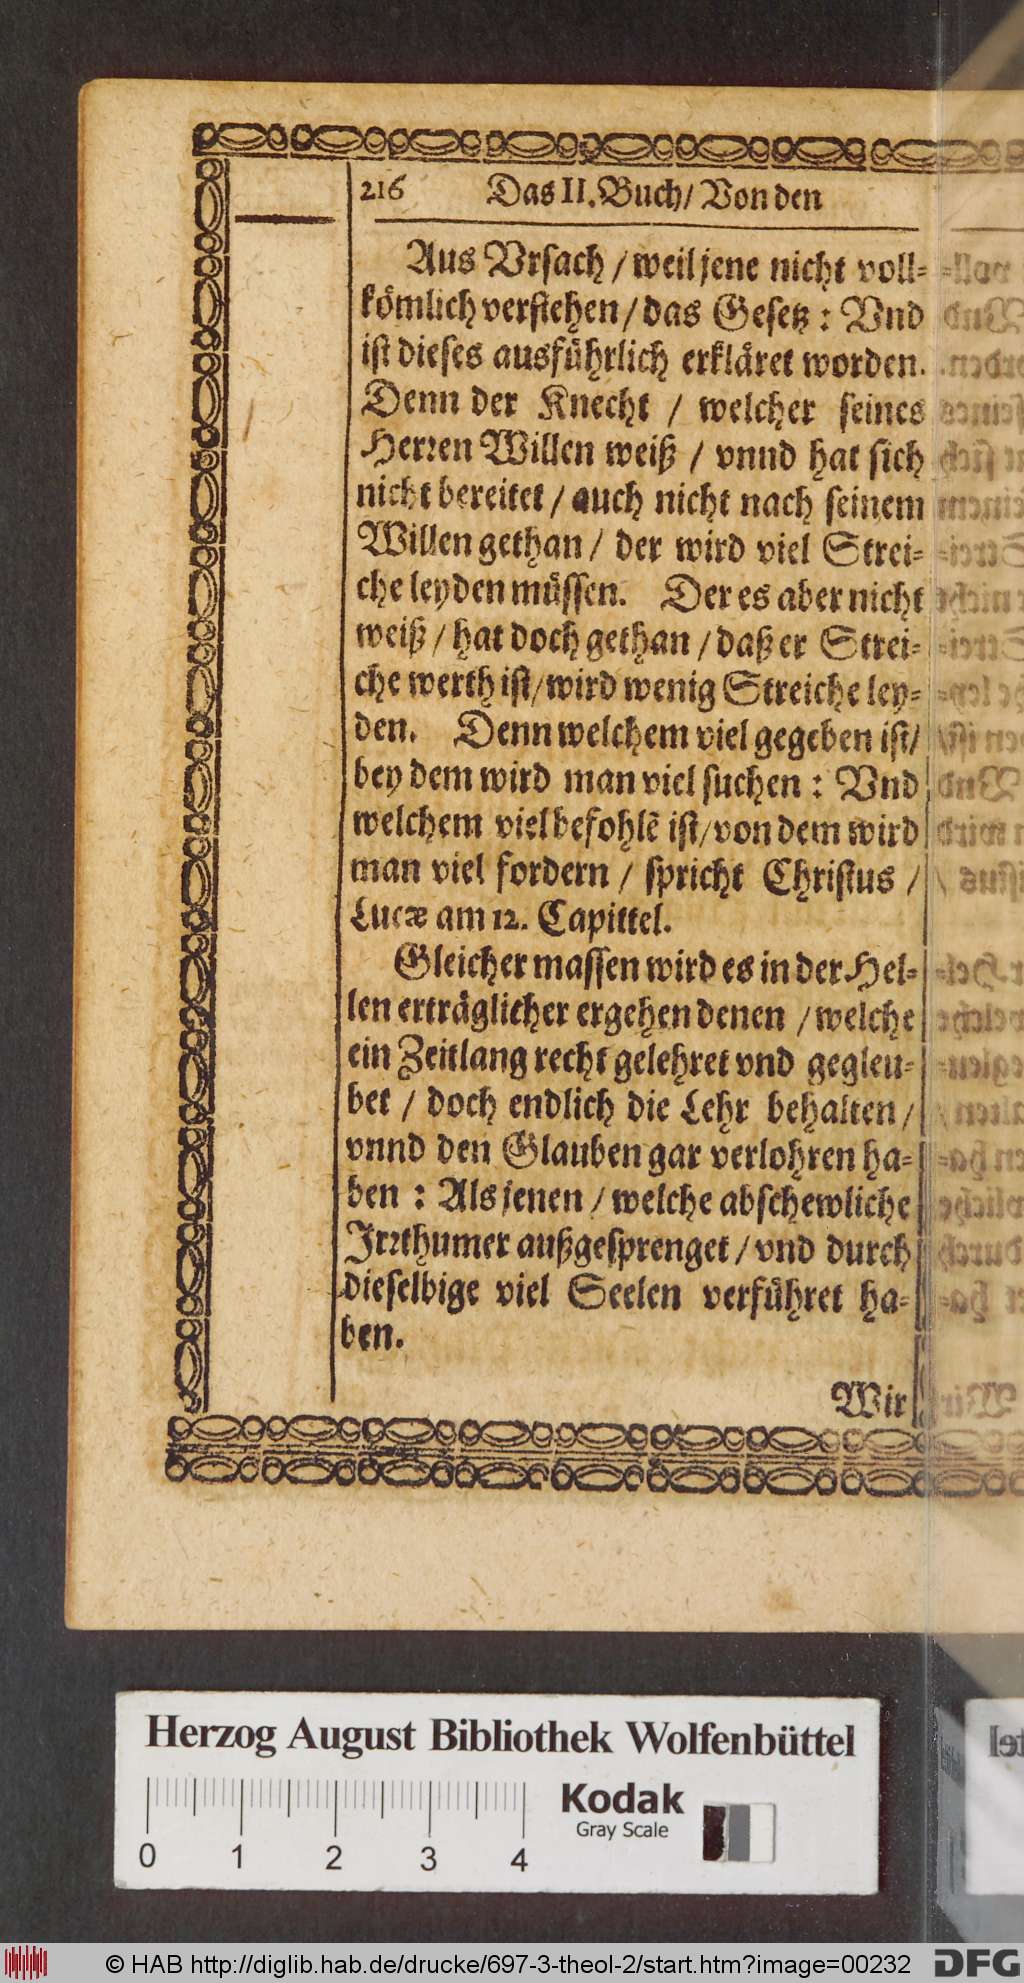 216 Das II. Buch/ Von den
Aus Vrsach / weil jene nicht voll-
kömlich verstehen / das Gesetz : Vnd
ist dieses ausführlich erkläret worden.
Denn der Knecht / welcher seines
Herren Willen weiß / vnnd hat sich
nicht bereitet / auch nicht nach seinem
Willen gethan / der wird viel Strei-
che leyden müssen. Der es aber nicht
weiß / hat doch gethan / daß er Strei-
che werth ist/ wird wenig Streiche ley-
den. Denn welchem viel gegeben ist/
bey dem wird man viel suchen : Vnd
welchem viel befohlē ist/ von dem wird
man viel fordern / spricht Christus /
Lucæ am 12. Capittel.
Gleicher massen wird es in der Hel-
len erträglicher ergehen denen / welche
ein Zeitlang recht gelehret vnd gegleu-
bet / doch endlich die Lehr behalten /
vnnd den Glauben gar verlohren ha-
ben : Als jenen / welche abschewliche
Irrthumer außgesprenget / vnd durch
dieselbige viel Seelen verführet ha-
ben.
Wir
Herzog August Bibliothek Wolfenbüttel
Kodak
Gray Scale
0 1 2 3 4
© HAB http://diglib.hab.de/drucke/697-3-theol-2/start.htm?image=00232
DFG